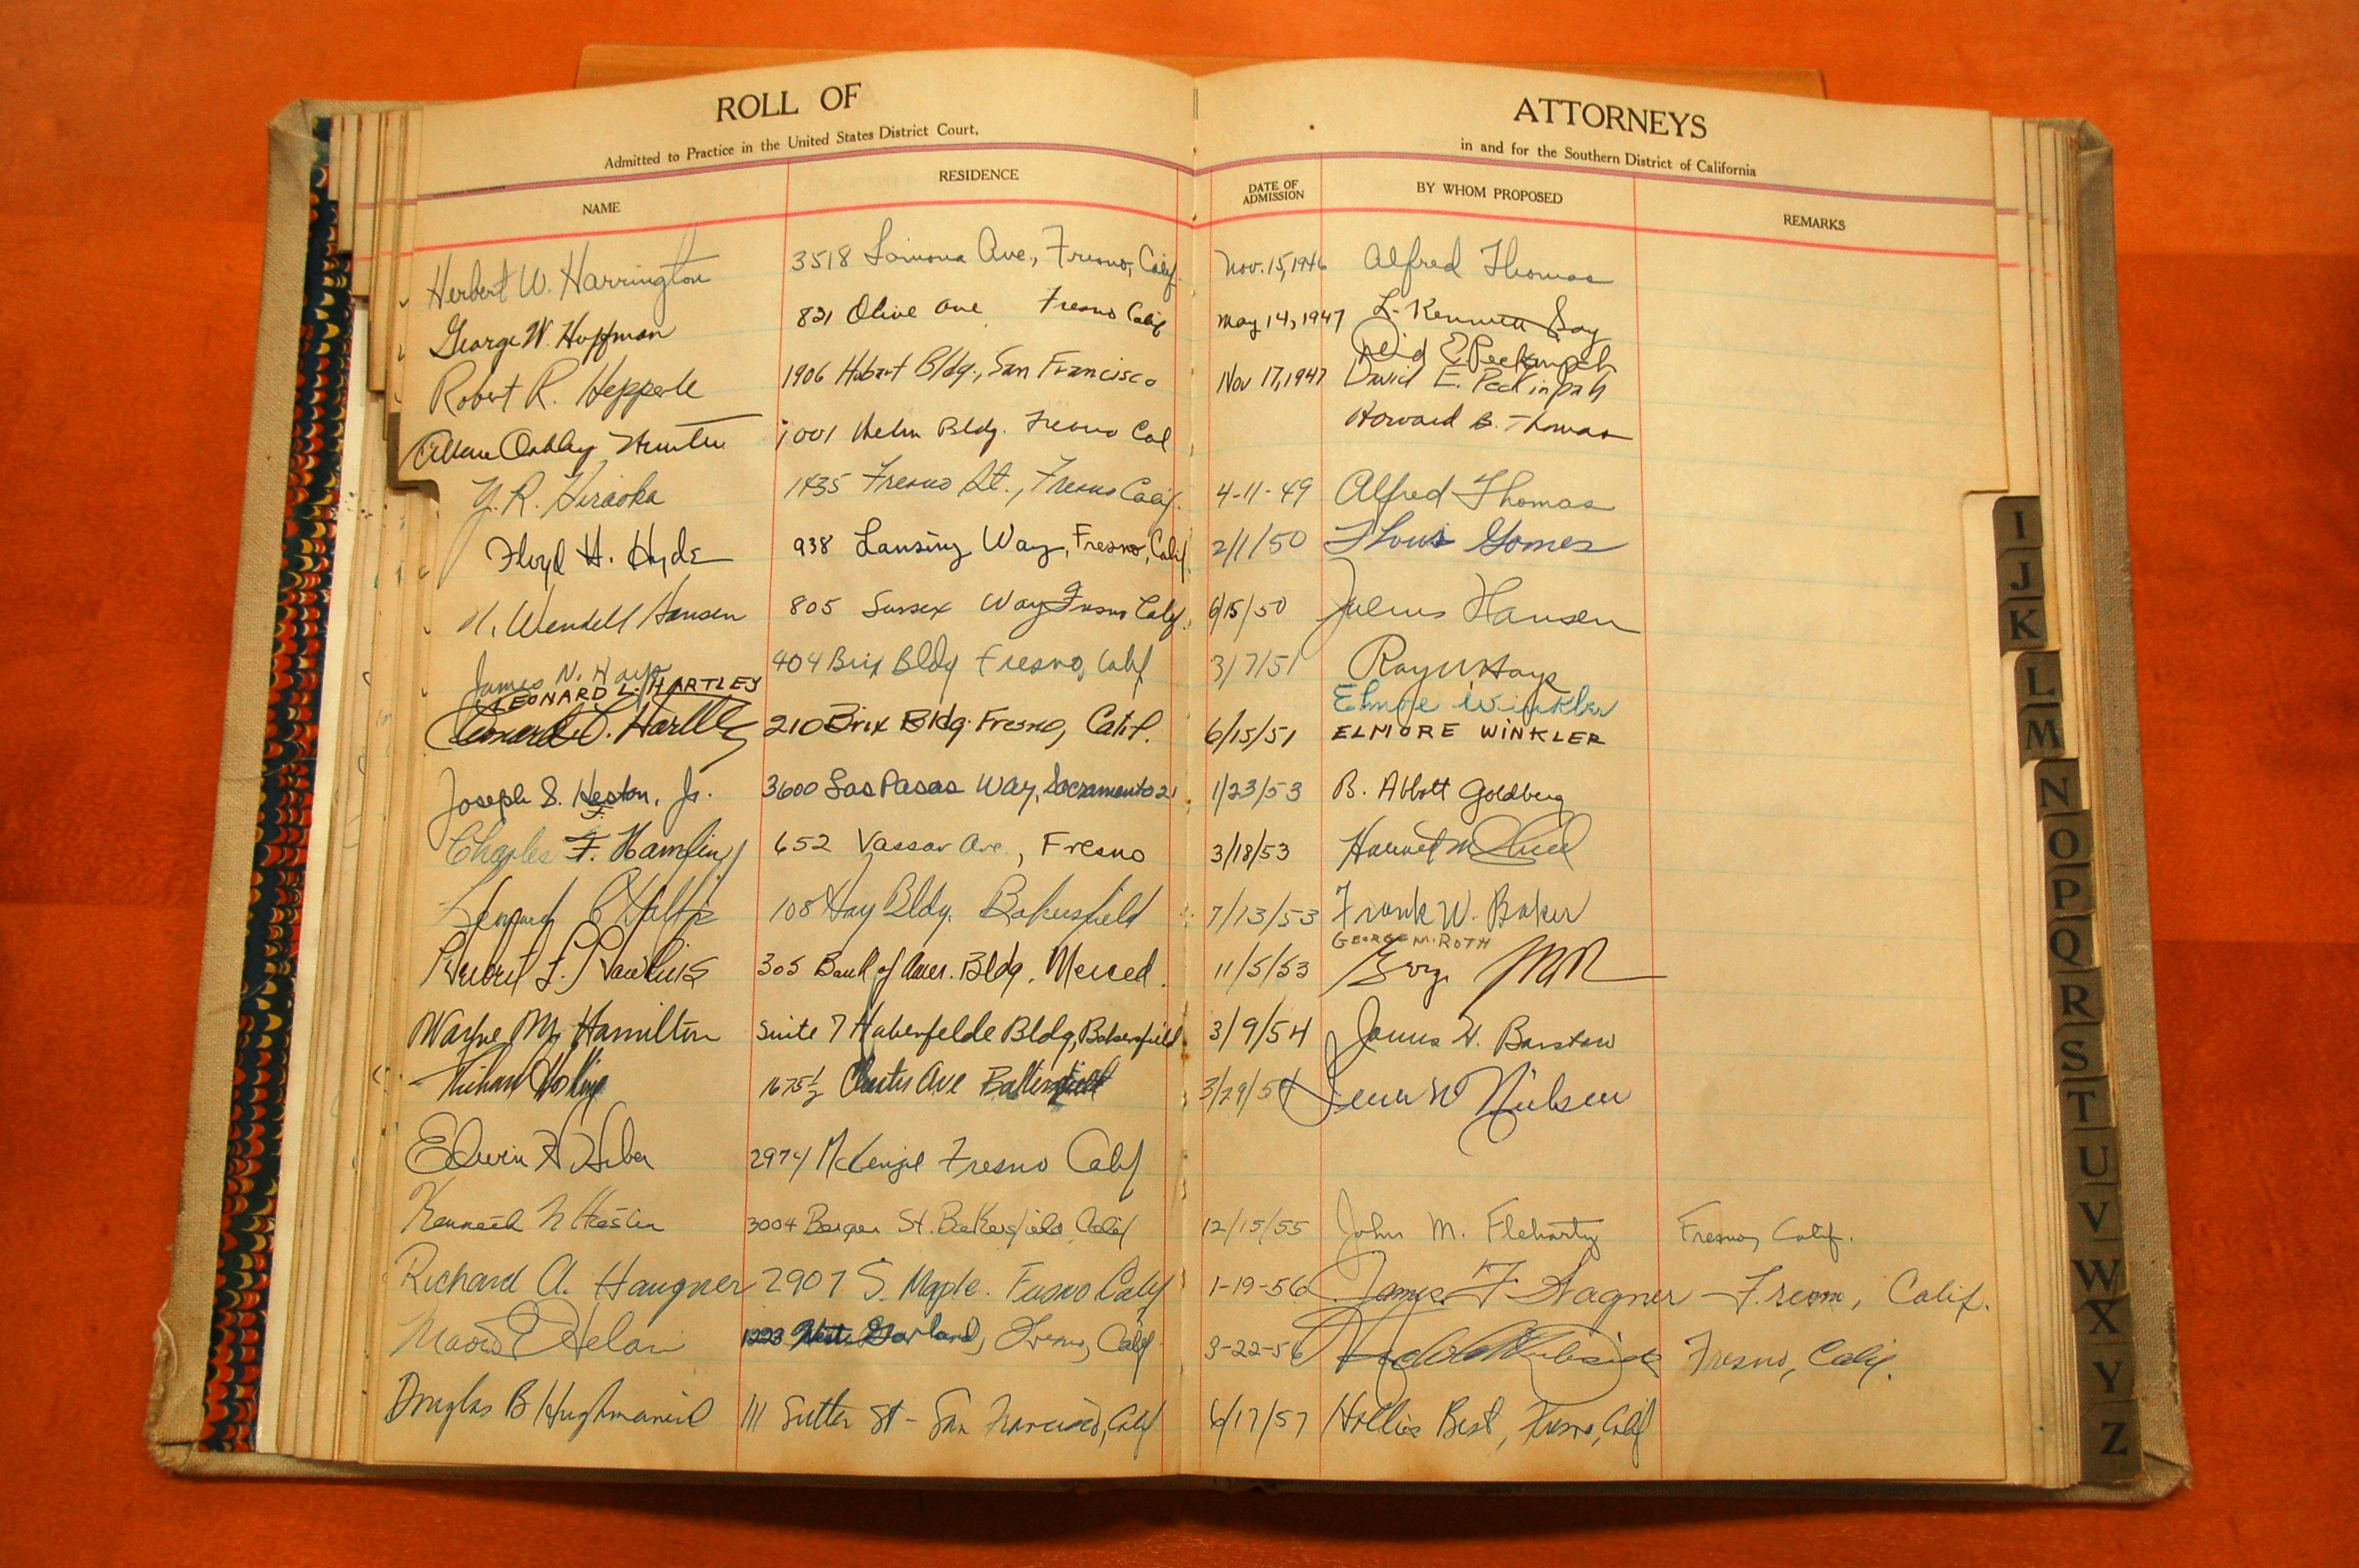 ROLL OF ATTORNEYS
Admitted to Practice in the United States District Court, in and for the Southern District of California
NAME RESIDENCE DATE OF ADMISSION BY WHOM PROPOSED REMARKS
Herbert W. Harrington 3518 Ave., Fresno, Calif. Nov. 15, 1946 Alfred Thomas
George W. Huffman 821 Olive Ave Fresno Calif May 14, 1947 L. Kenneth Say
Robert R. Hepperle 1906 Hobart Bldg., San Francisco Nov 17, 1947 David E. Peckinpah
David E. Peckinpah
Allan Oakley Hunter 1001 Helm Bldg. Fresno Cal Howard B. Thomas
Y. R. Hiraoka 1435 Fresno St., Fresno Calif. 4-11-49 Alfred Thomas
Floyd H. Hyde 938 Lansing Way, Fresno, Calif 2/1/50 Gomes
Wendell Hansen 805 Sussex Way Fresno Calif. 6/15/50 Julius Hansen
James N. Hays 404 Brix Bldg Fresno, Calif 3/7/51 Ray W. Hays
LEONARD L. HARTLEY Elmore Winkler
Leonard L. Hartley 210 Brix Bldg. Fresno, Calif. 6/15/51 ELMORE WINKLER
Joseph S. Heston, Jr. 3600 Las Pasas Way, Sacramento 21 1/23/53 B. Abbott Goldberg
Charles F. Hamlin 652 Vassar Ave., Fresno 3/18/53
108 Hay Bldg. Bakersfield 7/13/53 Frank W. Baker
GEORGE M. ROTH
305 Bank of Amer. Bldg. Merced. 11/5/53
Wayne M. Hamilton Suite 7 Haberfelde Bldg, Bakersfield 3/9/54 James H. Barstow
Richard 1675½ Ave Bakersfield 3/29/54 Nielsen
Edwin 2974 McKenzie Fresno Calif
Kenneth 3004 Berger St. Bakersfield, Calif 12/15/55 John M. Fleharty Fresno, Calif.
Richard A. Haugner 2907 S. Maple. Fresno Calif 1-19-56 James F. Wagner - Fresno, Calif.
1223 West Garland, Fresno, Calif. 3-22-56 Fresno, Calif.
Douglas B 111 Sutter St - San Francisco, Calif 6/17/57 Hollis Best, Fresno, Calif
I
J
K
L
M
N
O
P
Q
R
S
T
U
V
W
X
Y
Z